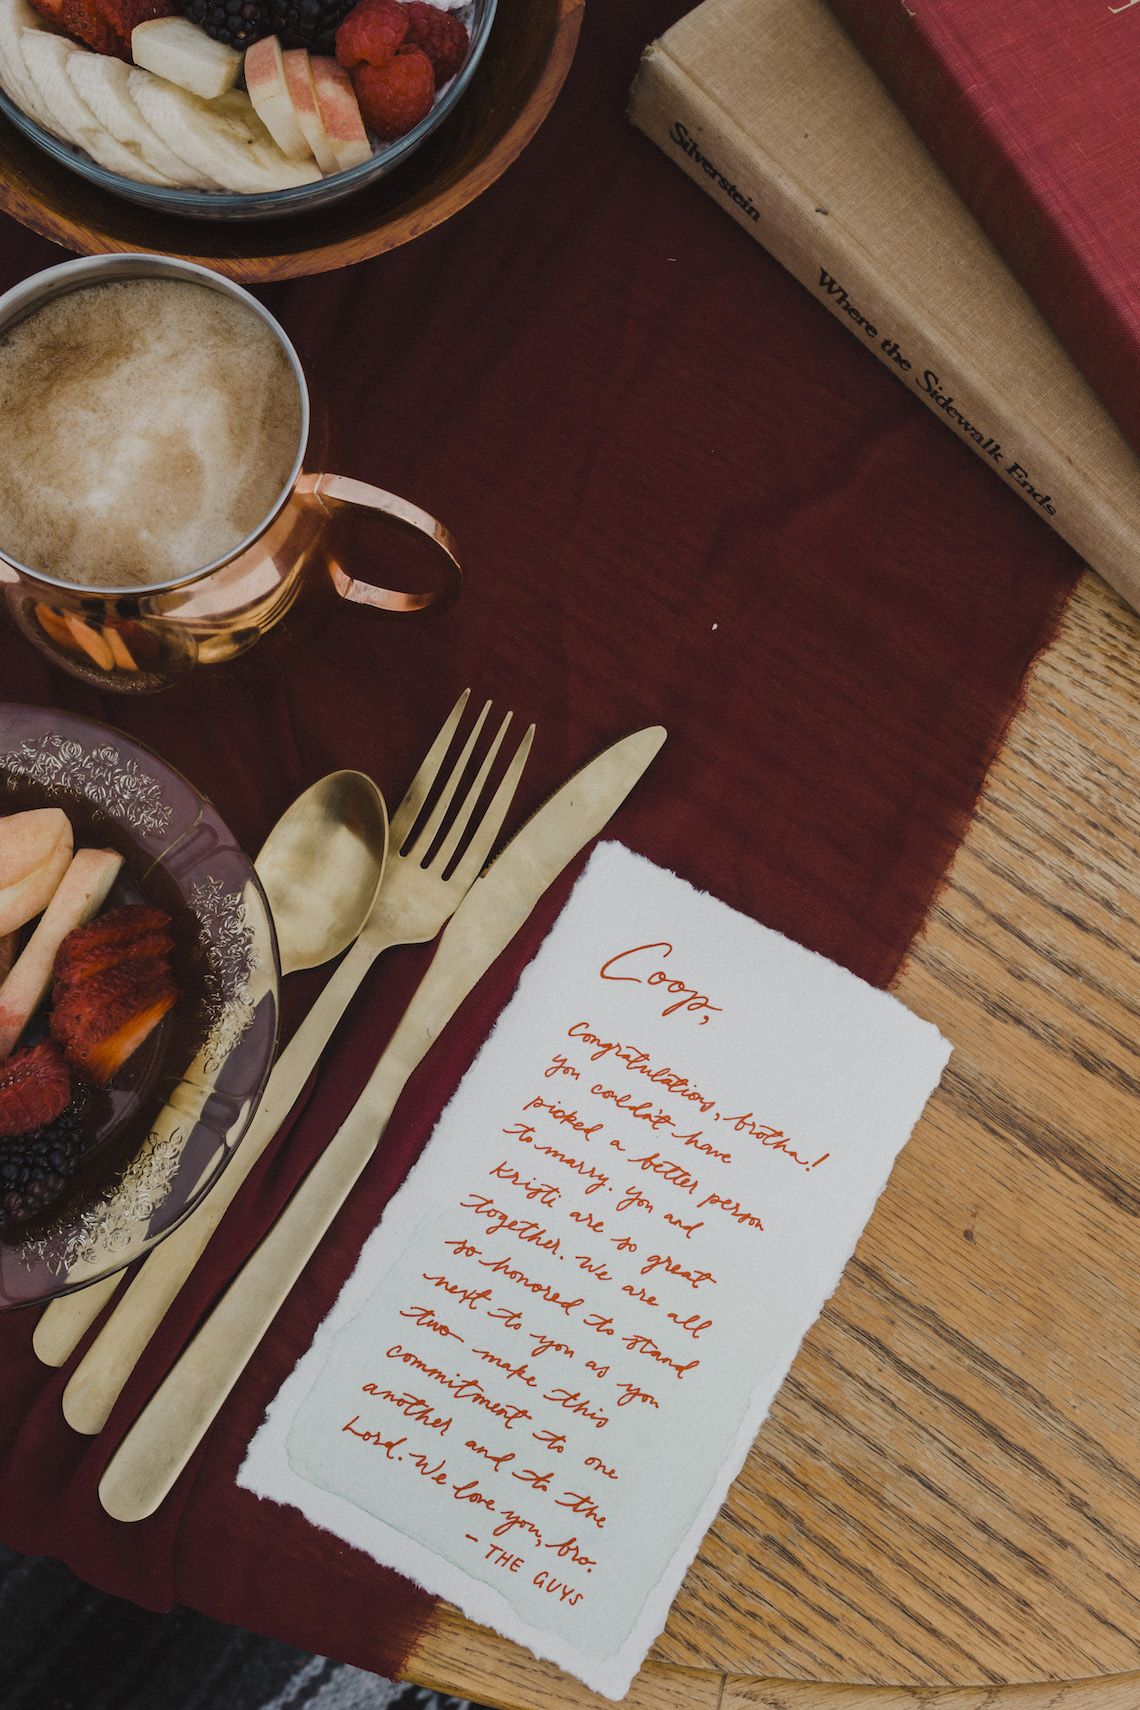 Silverstein
Where the Sidewalk Ends
Coop,
Congratulations, brotha!
you couldn't have
picked a better person
to marry. You and
Kristi are so great
together. We are all
so honored to stand
next to you as you
two make this
commitment to one
another and to the
Lord. We love you, bro.
- THE GUYS